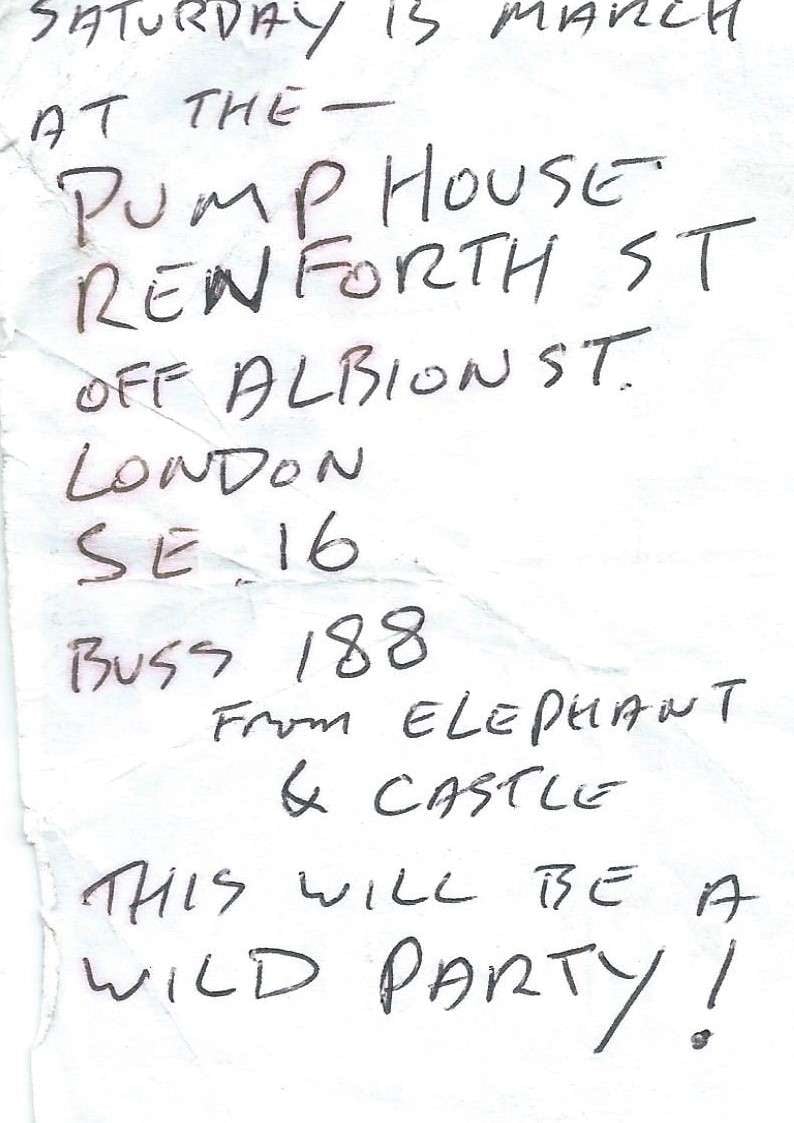 SATURDAY 13 MARCH
AT THE —
PUMP HOUSE
RENFORTH ST
OFF ALBION ST.
LONDON
SE.16
BUSS 188
From ELEPHANT
& CASTLE
THIS WILL BE A
WILD PARTY!